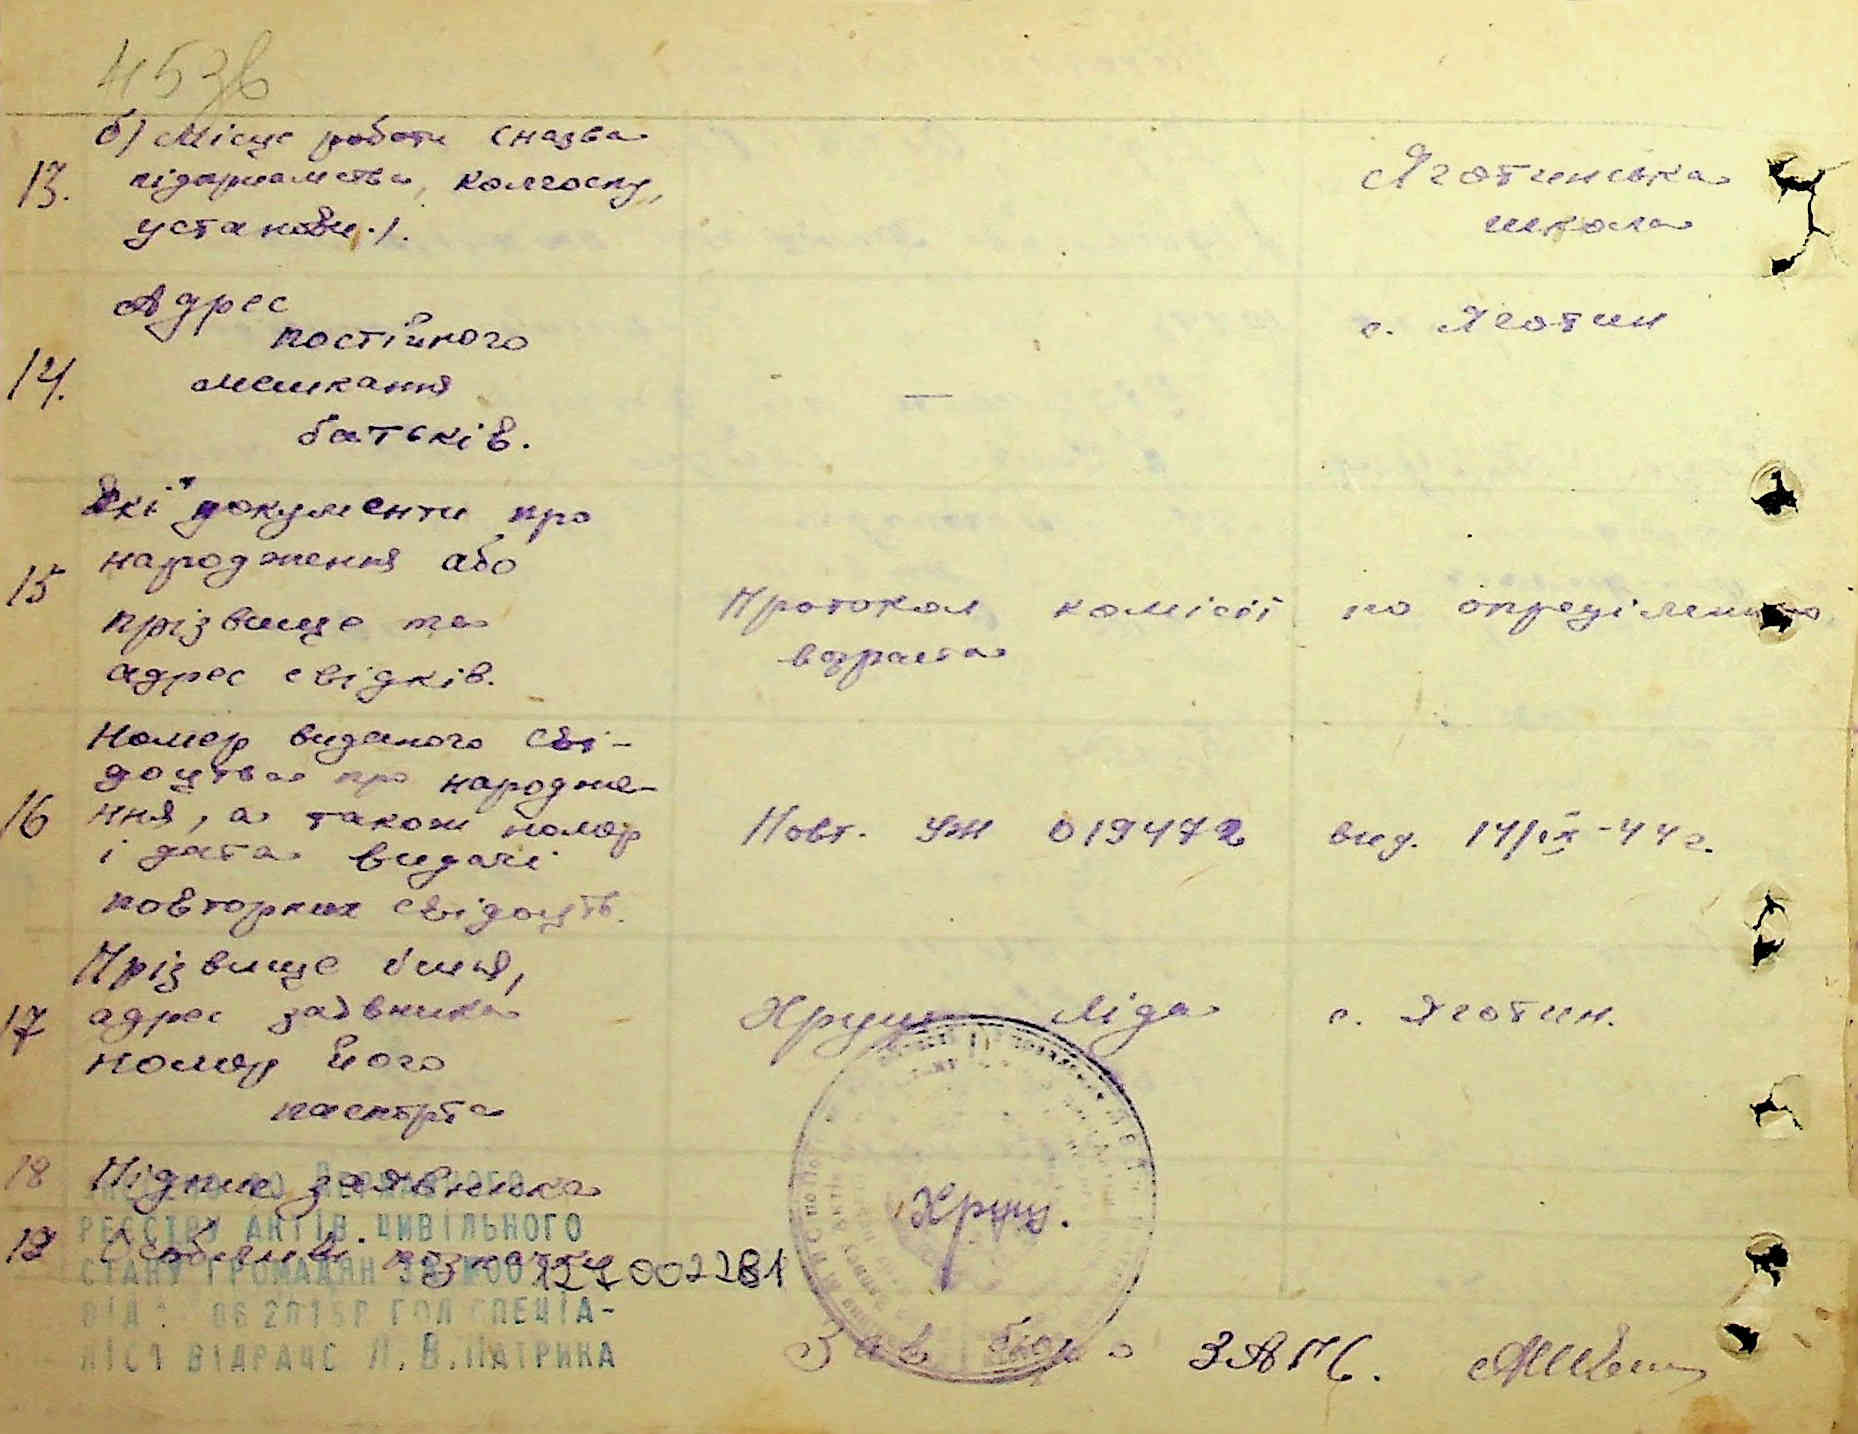 453б
б) Місце роботи (назва
13. підприємства, колгоспу,
установи.).
Яготинська
школа
Адрес
постійного
14. мешкання
батьків.
—
с. Яготин
Які документи про
народження або
15 прізвище та
адрес свідків.
Протокол комісії по определенню
возраста
Номер виданого сві-
доцтва про народже-
16 ння, а також номер
і дата видачі
повторних свідоцтв.
Повт. УЖ 019472 вид. 14/ІХ-44 г.
Прізвище імя,
17 адрес заявника
номер його
паспорта
Хрущ Ліда с. Яготин.
18 Підпис заявника
Хрущ.
19 Особливі позначки
РЕЄСТРУ АКТІВ ЦИВІЛЬНОГО
СТАНУ ГРОМАДЯН ЗА №00
127002281
ВІД 06 2015Р ГОЛ СПЕЦІА-
ЛІСТ ВІДРАЦС Л.В.ПАТРИКА
Зав бюро ЗАГС.